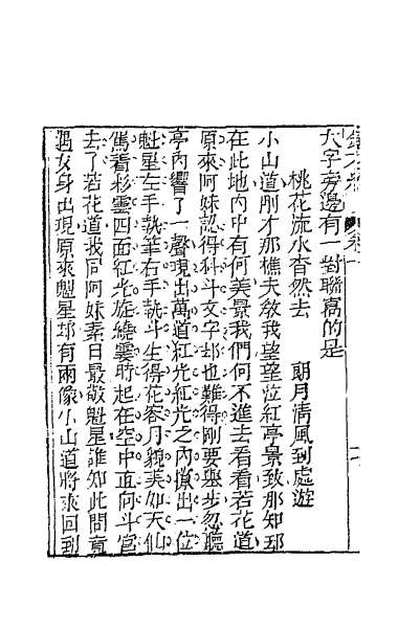 大字旁邊有一對聯寫的是
桃花流水杳然去　朗月清風到處遊
小山道剛才那樵夫敎我望望泣紅亭景致那知却
在此地内中有何美景我們何不進去看看若花道
原來阿妹認得科斗文字却也難得剛要舉步忽聽
亭内響了一聲現出萬道紅光紅光之内憬出一位
魁星左手執筆右手執斗生得花容月貌美如天仙
駕着彩雲四面紅光旋繞霎時起在空中直向斗宮
去了若花道我同阿妹素日最敬魁星誰知此間竟
遇女身出現原來魁星却有兩像小山道將來回到